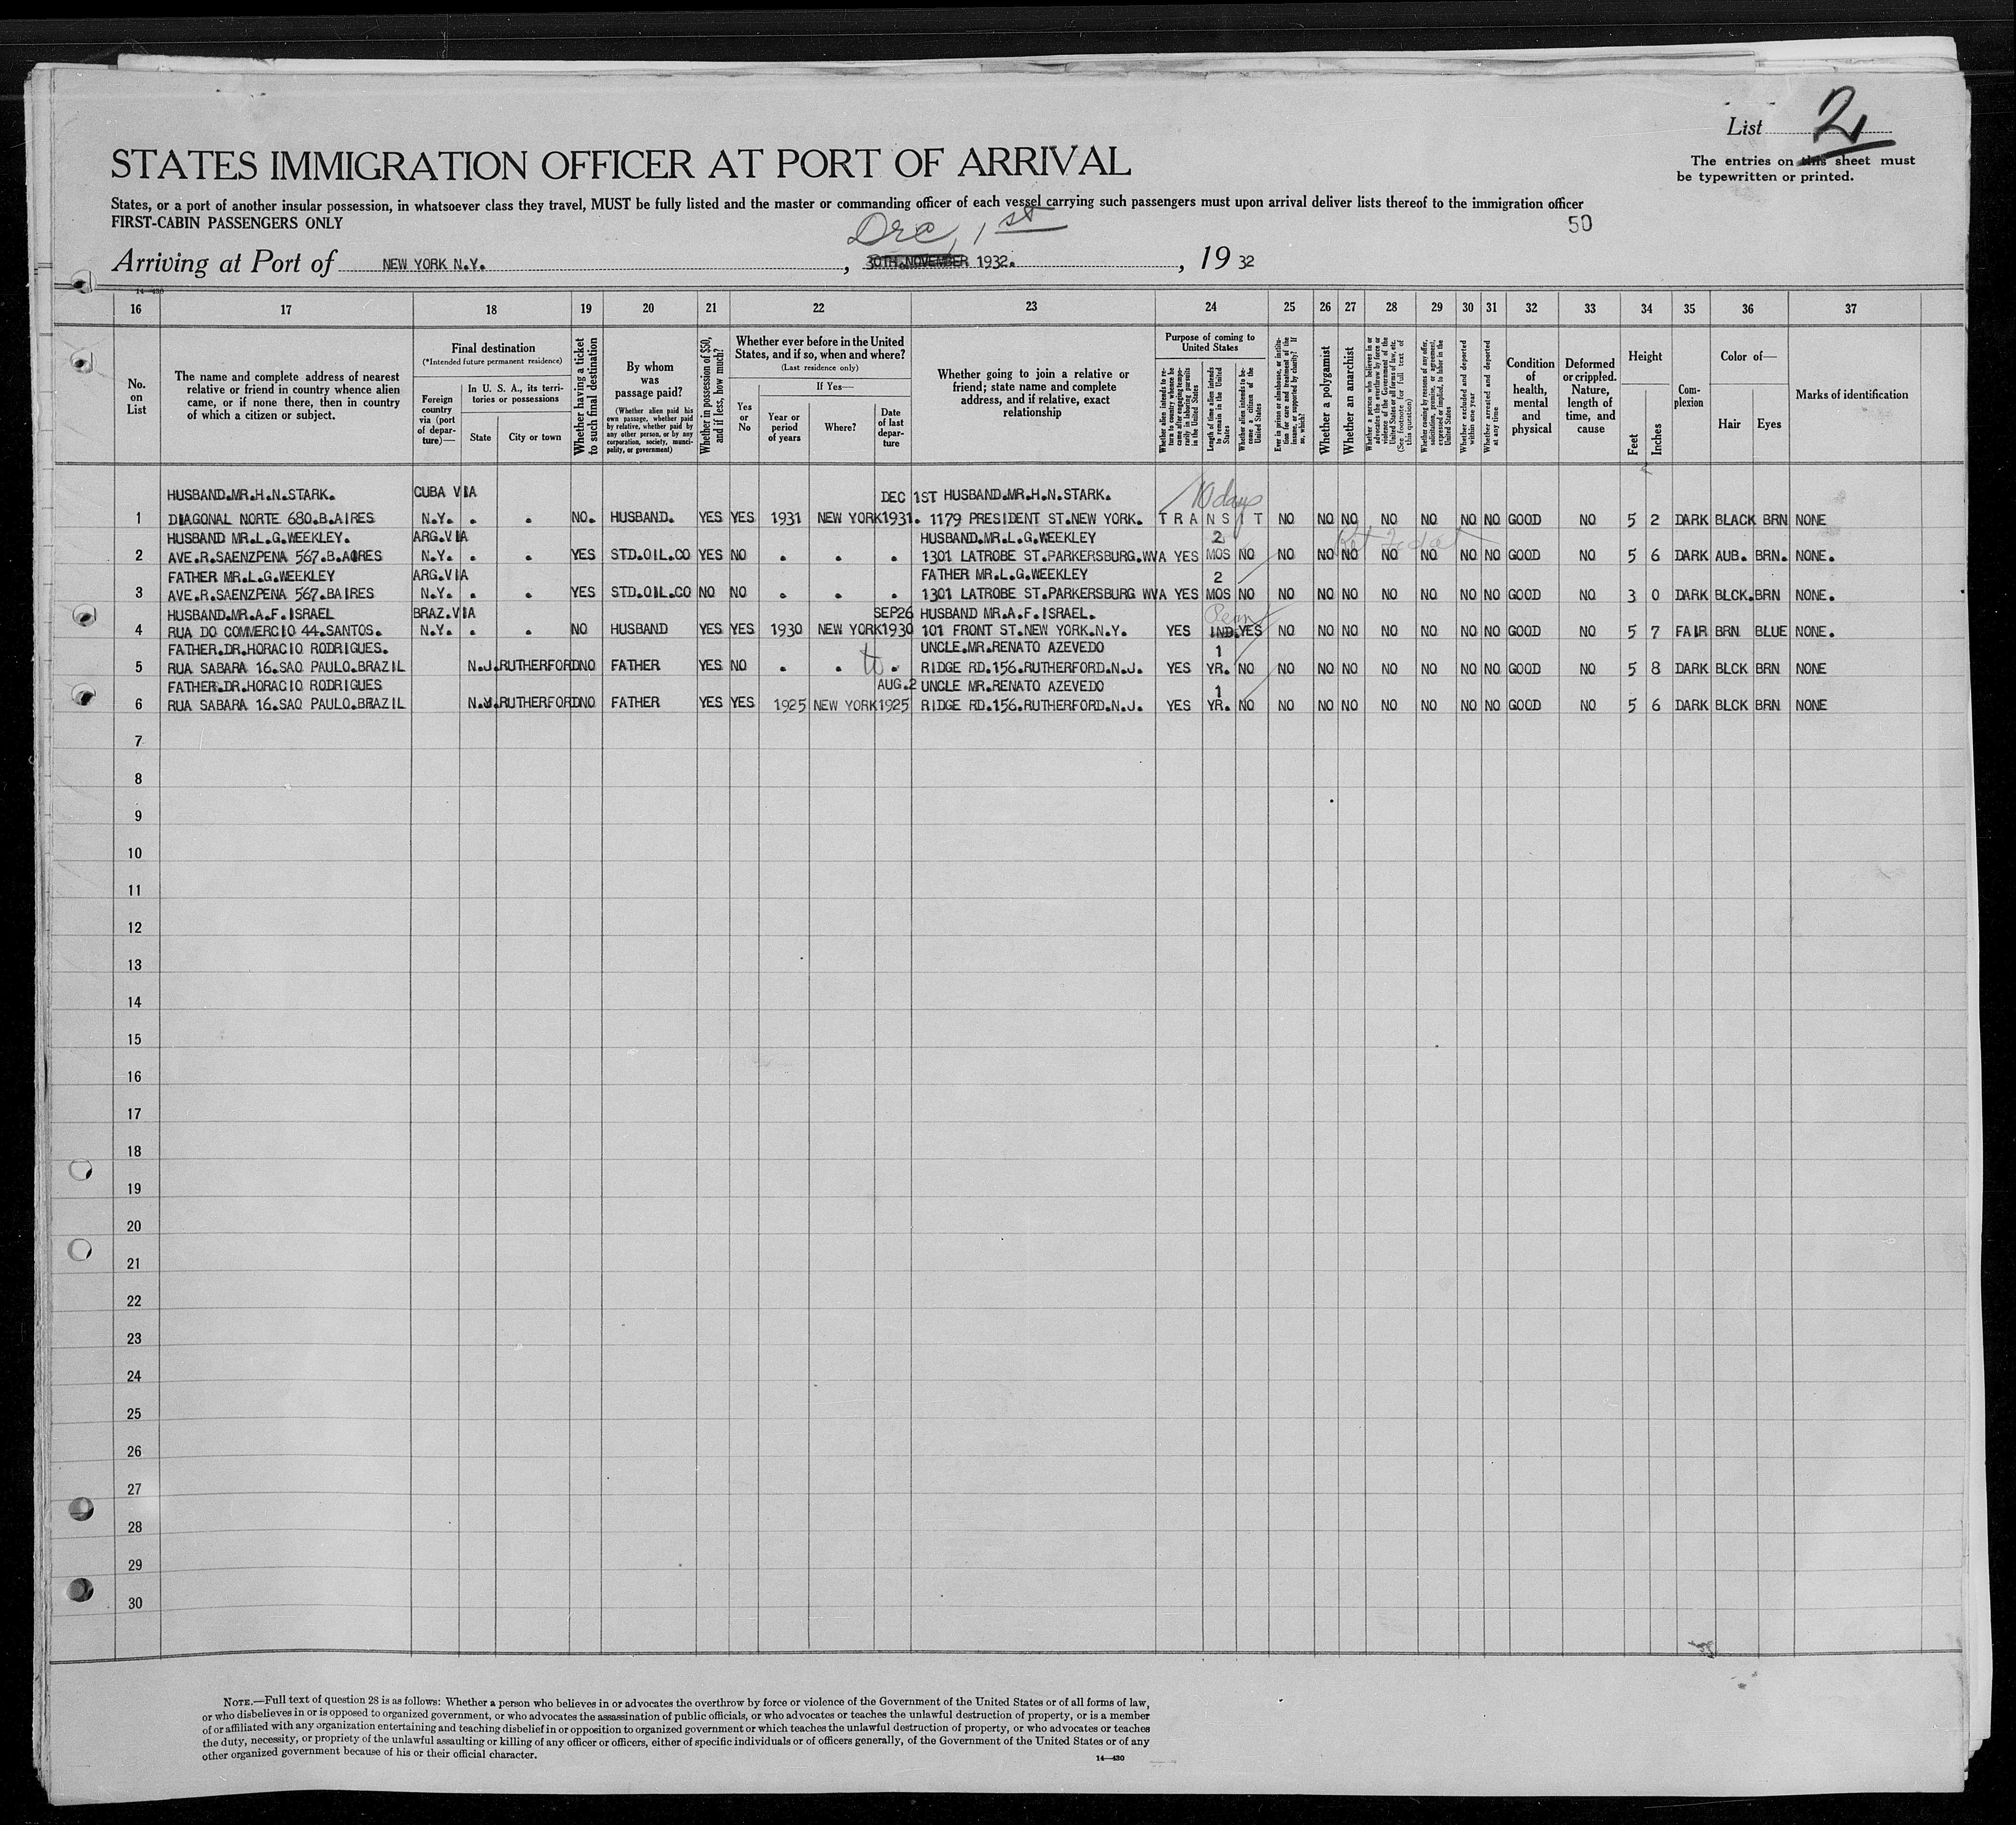 List 2
The entries on this sheet must
be typewritten or printed.
STATES IMMIGRATION OFFICER AT PORT OF ARRIVAL
States, or a port of another insular possession, in whatsoever class they travel, MUST be fully listed and the master or commanding officer of each vessel carrying such passengers must upon arrival deliver lists thereof to the immigration officer
FIRST-CABIN PASSENGERS ONLY
50
Dec, 1st
Arriving at Port of NEW YORK N.Y. , 30TH.NOVEMBER 1932. , 19 32
14—430
16 17 18 19 20 21 22 23 24 25 26 27 28 29 30 31 32 33 34 35 36 37
No. on List
The name and complete address of nearest relative or friend in country whence alien came, or if none there, then in country of which a citizen or subject.
Final destination
(*Intended future permanent residence)
Foreign country via (port of departure)—
In U. S. A., its territories or possessions
State
City or town
Whether having a ticket to such final destination
By whom was passage paid?
(Whether alien paid his own passage, whether paid by relative, whether paid by any other person, or by any corporation, society, municipality, or government)
Whether in possession of $50, and if less, how much?
Whether ever before in the United States, and if so, when and where?
(Last residence only)
Yes or No
If Yes—
Year or period of years
Where?
Date of last departure
Whether going to join a relative or friend; state name and complete address, and if relative, exact relationship
Purpose of coming to United States
Whether alien intends to return to country whence he came after engaging temporarily in laboring pursuits in the United States
Length of time alien intends to remain in the United States
Whether alien intends to become a citizen of the United States
Ever in prison or almshouse, or institution for care and treatment of the insane, or supported by charity? If so, which?
Whether a polygamist
Whether an anarchist
Whether a person who believes in or advocates the overthrow by force or violence of the Government of the United States or all forms of law, etc. (See footnote for full text of this question)
Whether coming by reasons of any offer, solicitation, promise, or agreement, expressed or implied, to labor in the United States
Whether excluded and deported within one year
Whether arrested and deported at any time
Condition of health, mental and physical
Deformed or crippled. Nature, length of time, and cause
Height
Feet
Inches
Complexion
Color of—
Hair
Eyes
Marks of identification
HUSBAND.MR.H.N.STARK. CUBA VIA DEC 1ST HUSBAND.MR.H.N.STARK. 10 days
1 DIAGONAL NORTE 680.B.AIRES N.Y. . . NO. HUSBAND. YES YES 1931 NEW YORK 1931. 1179 PRESIDENT ST.NEW YORK. TRANSIT NO NO NO NO NO NO NO GOOD NO 5 2 DARK BLACK BRN NONE
HUSBAND MR.L.G.WEEKLEY. ARG.VIA HUSBAND.MR.L.G.WEEKLEY 2
2 AVE.R.SAENZPENA 567.B.AIRES N.Y. . . YES STD.OIL.CO YES NO . . . 1301 LATROBE ST.PARKERSBURG.WVA YES MOS NO NO NO NO NO NO NO NO GOOD NO 5 6 DARK AUB. BRN. NONE.
FATHER MR.L.G.WEEKLEY ARG.VIA FATHER MR.L.G.WEEKLEY 2
3 AVE.R.SAENZPENA 567.BAIRES N.Y. . . YES STD.OIL.CO NO NO . . . 1301 LATROBE ST.PARKERSBURG WVA YES MOS NO NO NO NO NO NO NO NO GOOD NO 3 0 DARK BLCK.BRN NONE.
HUSBAND.MR.A.F.ISRAEL BRAZ.VIA SEP26 HUSBAND MR.A.F.ISRAEL. Perm
4 RUA DO COMMERCIO 44.SANTOS. N.Y. . . NO HUSBAND YES YES 1930 NEW YORK 1930 101 FRONT ST.NEW YORK.N.Y. YES IND. YES NO NO NO NO NO NO NO GOOD NO 5 7 FAIR BRN BLUE NONE.
FATHER.DR.HORACIO RODRIGUES. UNCLE.MR.RENATO AZEVEDO 1
5 RUA SABARA 16.SAO PAULO.BRAZIL N.J. RUTHERFORD NO FATHER YES NO . . to . RIDGE RD.156.RUTHERFORD.N.J. YES YR. NO NO NO NO NO NO NO NO GOOD NO 5 8 DARK BLCK BRN NONE
FATHER.DR.HORACIO RODRIGUES AUG.2 UNCLE MR.RENATO AZEVEDO 1
6 RUA SABARA 16.SAO PAULO.BRAZIL N.J. RUTHERFORD NO FATHER YES YES 1925 NEW YORK 1925 RIDGE RD.156.RUTHERFORD.N.J. YES YR. NO NO NO NO NO NO NO NO GOOD NO 5 6 DARK BLCK BRN NONE
7
8
9
10
11
12
13
14
15
16
17
18
19
20
21
22
23
24
25
26
27
28
29
30
NOTE.—Full text of question 28 is as follows: Whether a person who believes in or advocates the overthrow by force or violence of the Government of the United States or of all forms of law,
or who disbelieves in or is opposed to organized government, or who advocates the assassination of public officials, or who advocates or teaches the unlawful destruction of property, or is a member
of or affiliated with any organization entertaining and teaching disbelief in or opposition to organized government or which teaches the unlawful destruction of property, or who advocates or teaches
the duty, necessity, or propriety of the unlawful assaulting or killing of any officer or officers, either of specific individuals or of officers generally, of the Government of the United States or of any
other organized government because of his or their official character.
14—430